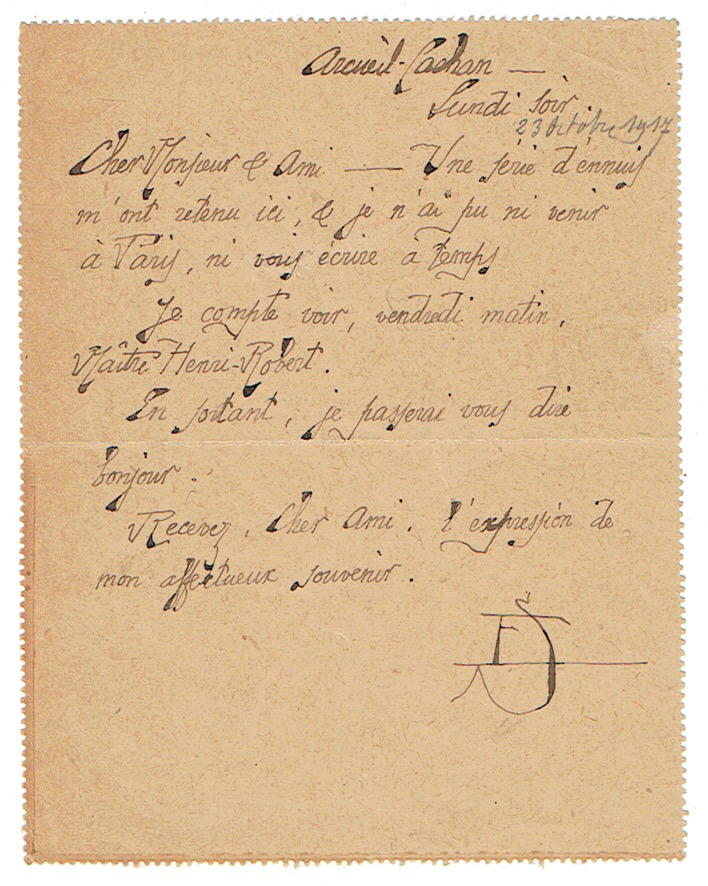 Arcueil-Cachan —
Lundi soir.
23 Octobre 1917
Cher Monsieur & Ami — Une série d'ennuis
m'ont retenu ici, & je n'ai pu ni venir
à Paris, ni vous écrire à temps
Je compte voir, vendredi matin,
Maître Henri-Robert.
En sortant, je passerai vous dire
bonjour.
Recevez, Cher Ami, l'expression de
mon affectueux souvenir.
ES